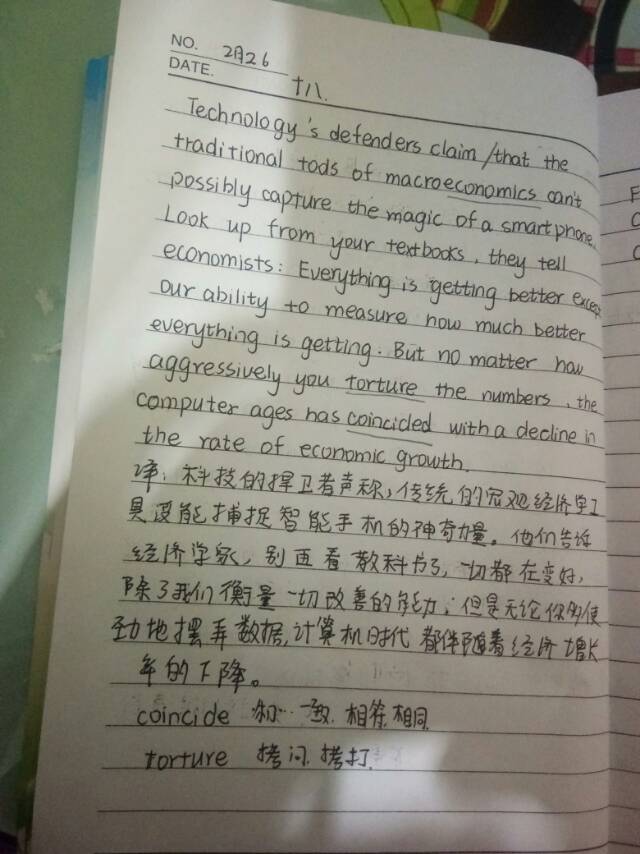 NO. 2月26
DATE. 十八.
Technology's defenders claim /that the
traditional tods of macroeconomics can't
possibly capture the magic of a smartphone.
Look up from your textbooks, they tell
economists: Everything is getting better except
our ability to measure how much better
everything is getting. But no matter how
aggressively you torture the numbers, the
computer ages has coincided with a decline in
the rate of economic growth.
译: 科技的捍卫者声称, 传统的宏观经济学工
具没能捕捉智能手机的神奇力量。他们告诉
经济学家, 别再看教科书了, 一切都在变好,
除了我们衡量一切改善的能力; 但是无论你多使
劲地摆弄数据, 计算机时代都伴随着经济增长
率的下降。
coincide 和…一致. 相符. 相同.
torture 拷问. 拷打.